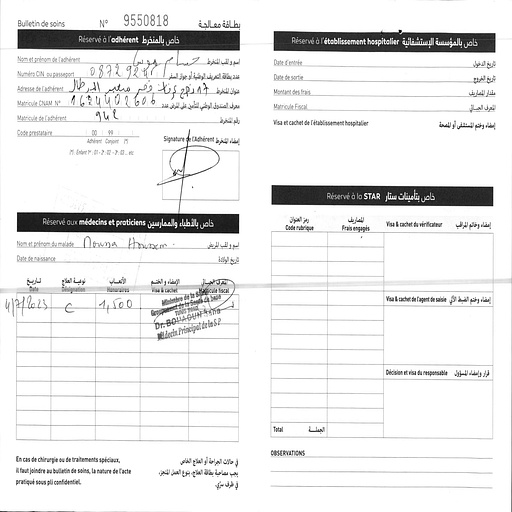 Bulletin de soins N° 9550818 بطاقة معالجة
Réservé à l'adhérent خاص بالمنخرط
Nom et prénom de l'adhérent حسام اسم و لقب المنخرط
Numéro CIN ou passeport عدد بطاقة التعريف الوطنية أو جواز السفر
Adresse de l'adhérent 17 نهج عنوان المنخرط
Matricule CNAM N° 1634402606 معرف الصندوق الوطني للتأمين على المرض عدد
Matricule de l'adhérent 942 رقم المنخرط
Code prestataire 00 99
Adhérent Conjoint (*)
(*) : Enfant 1er : 01 - 2e : 02 - 3e : 03 ... etc
Signature de l'Adhérent إمضاء المنخرط
Réservé aux médecins et praticiens خاص بالأطباء والممارسين
Nom et prénom du malade Moussa Houssem اسم و لقب المريض
Date de naissance تاريخ الولادة
التاريخ نوعية العلاج الأتعاب الإمضاء و الختم المعرف الجبائي
Date Désignation Honoraires Visa & cachet Matricule fiscal
4/7/2023 C 1,500
Ministère de la Santé
Groupement de la Santé de base
Dr. BOUAOUN
Médecin Principal de la SP
En cas de chirurgie ou de traitements spéciaux,
il faut joindre au bulletin de soins, la nature de l'acte
pratiqué sous pli confidentiel.
في حالات الجراحة أو العلاج الخاص
يجب مصاحبة بطاقة العلاج، بنوع العمل المنجز،
في ظرف سري.
Réservé à l'établissement hospitalier خاص بالمؤسسة الإستشفائية
Date d'entrée تاريخ الدخول
Date de sortie تاريخ الخروج
Montant des frais مقدار المصاريف
Matricule Fiscal المعرف الجبائي
Visa et cachet de l'établissement hospitalier إمضاء وختم المستشفى أو المصحة
Réservé à la STAR خاص بتأمينات ستار
رمز العنوان المصاريف
Code rubrique Frais engagés
Visa & cachet du vérificateur إمضاء وخاتم المراقب
Visa & cachet de l'agent de saisie إمضاء وختم الضبط الآلي
Décision et visa du responsable قرار وإمضاء المسؤول
Total الجملة
OBSERVATIONS